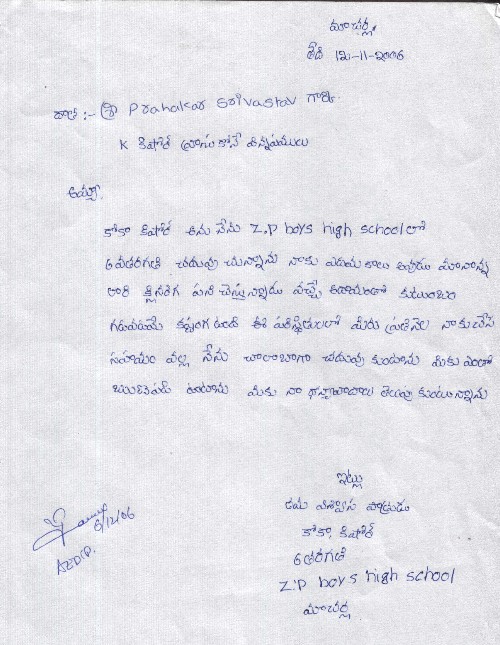 మాచర్ల,
తేది 12-11-2006
దాత :- శ్రీ Prahakar Srivastav గారికి
K కిషోర్ వ్రాయు కోనే విన్నపములు
అయ్యా,
కోకా కిషోర్ అను నేను Z.P boys high school లో
6వతరగతి చదువు చున్నాను నాకు ఎడమ కాలు అవుడు మానాన్న
లారి క్లీనరుగ పని చేస్తున్నాడు వచ్చే ఆదాయంతో కుటుంబం
గడవడమే కష్టంగ ఉంది ఈ పరిస్థితులలో మీరు ప్రతినెల నాకు చేసే
సహాయం వల్ల నేను చాలాబాగా చదువు కుంటాను మీకు ఎంతో
ఋణపడి ఉంటాను మీకు నా ధన్యవాదాలు తెలుపు కుంటున్నాను
ఇట్లు
తమ విశ్వాస పాత్రుడు
కోకా. కిషోర్
6తరగతి
Z.P boys high school
మాచర్ల
6/12/06